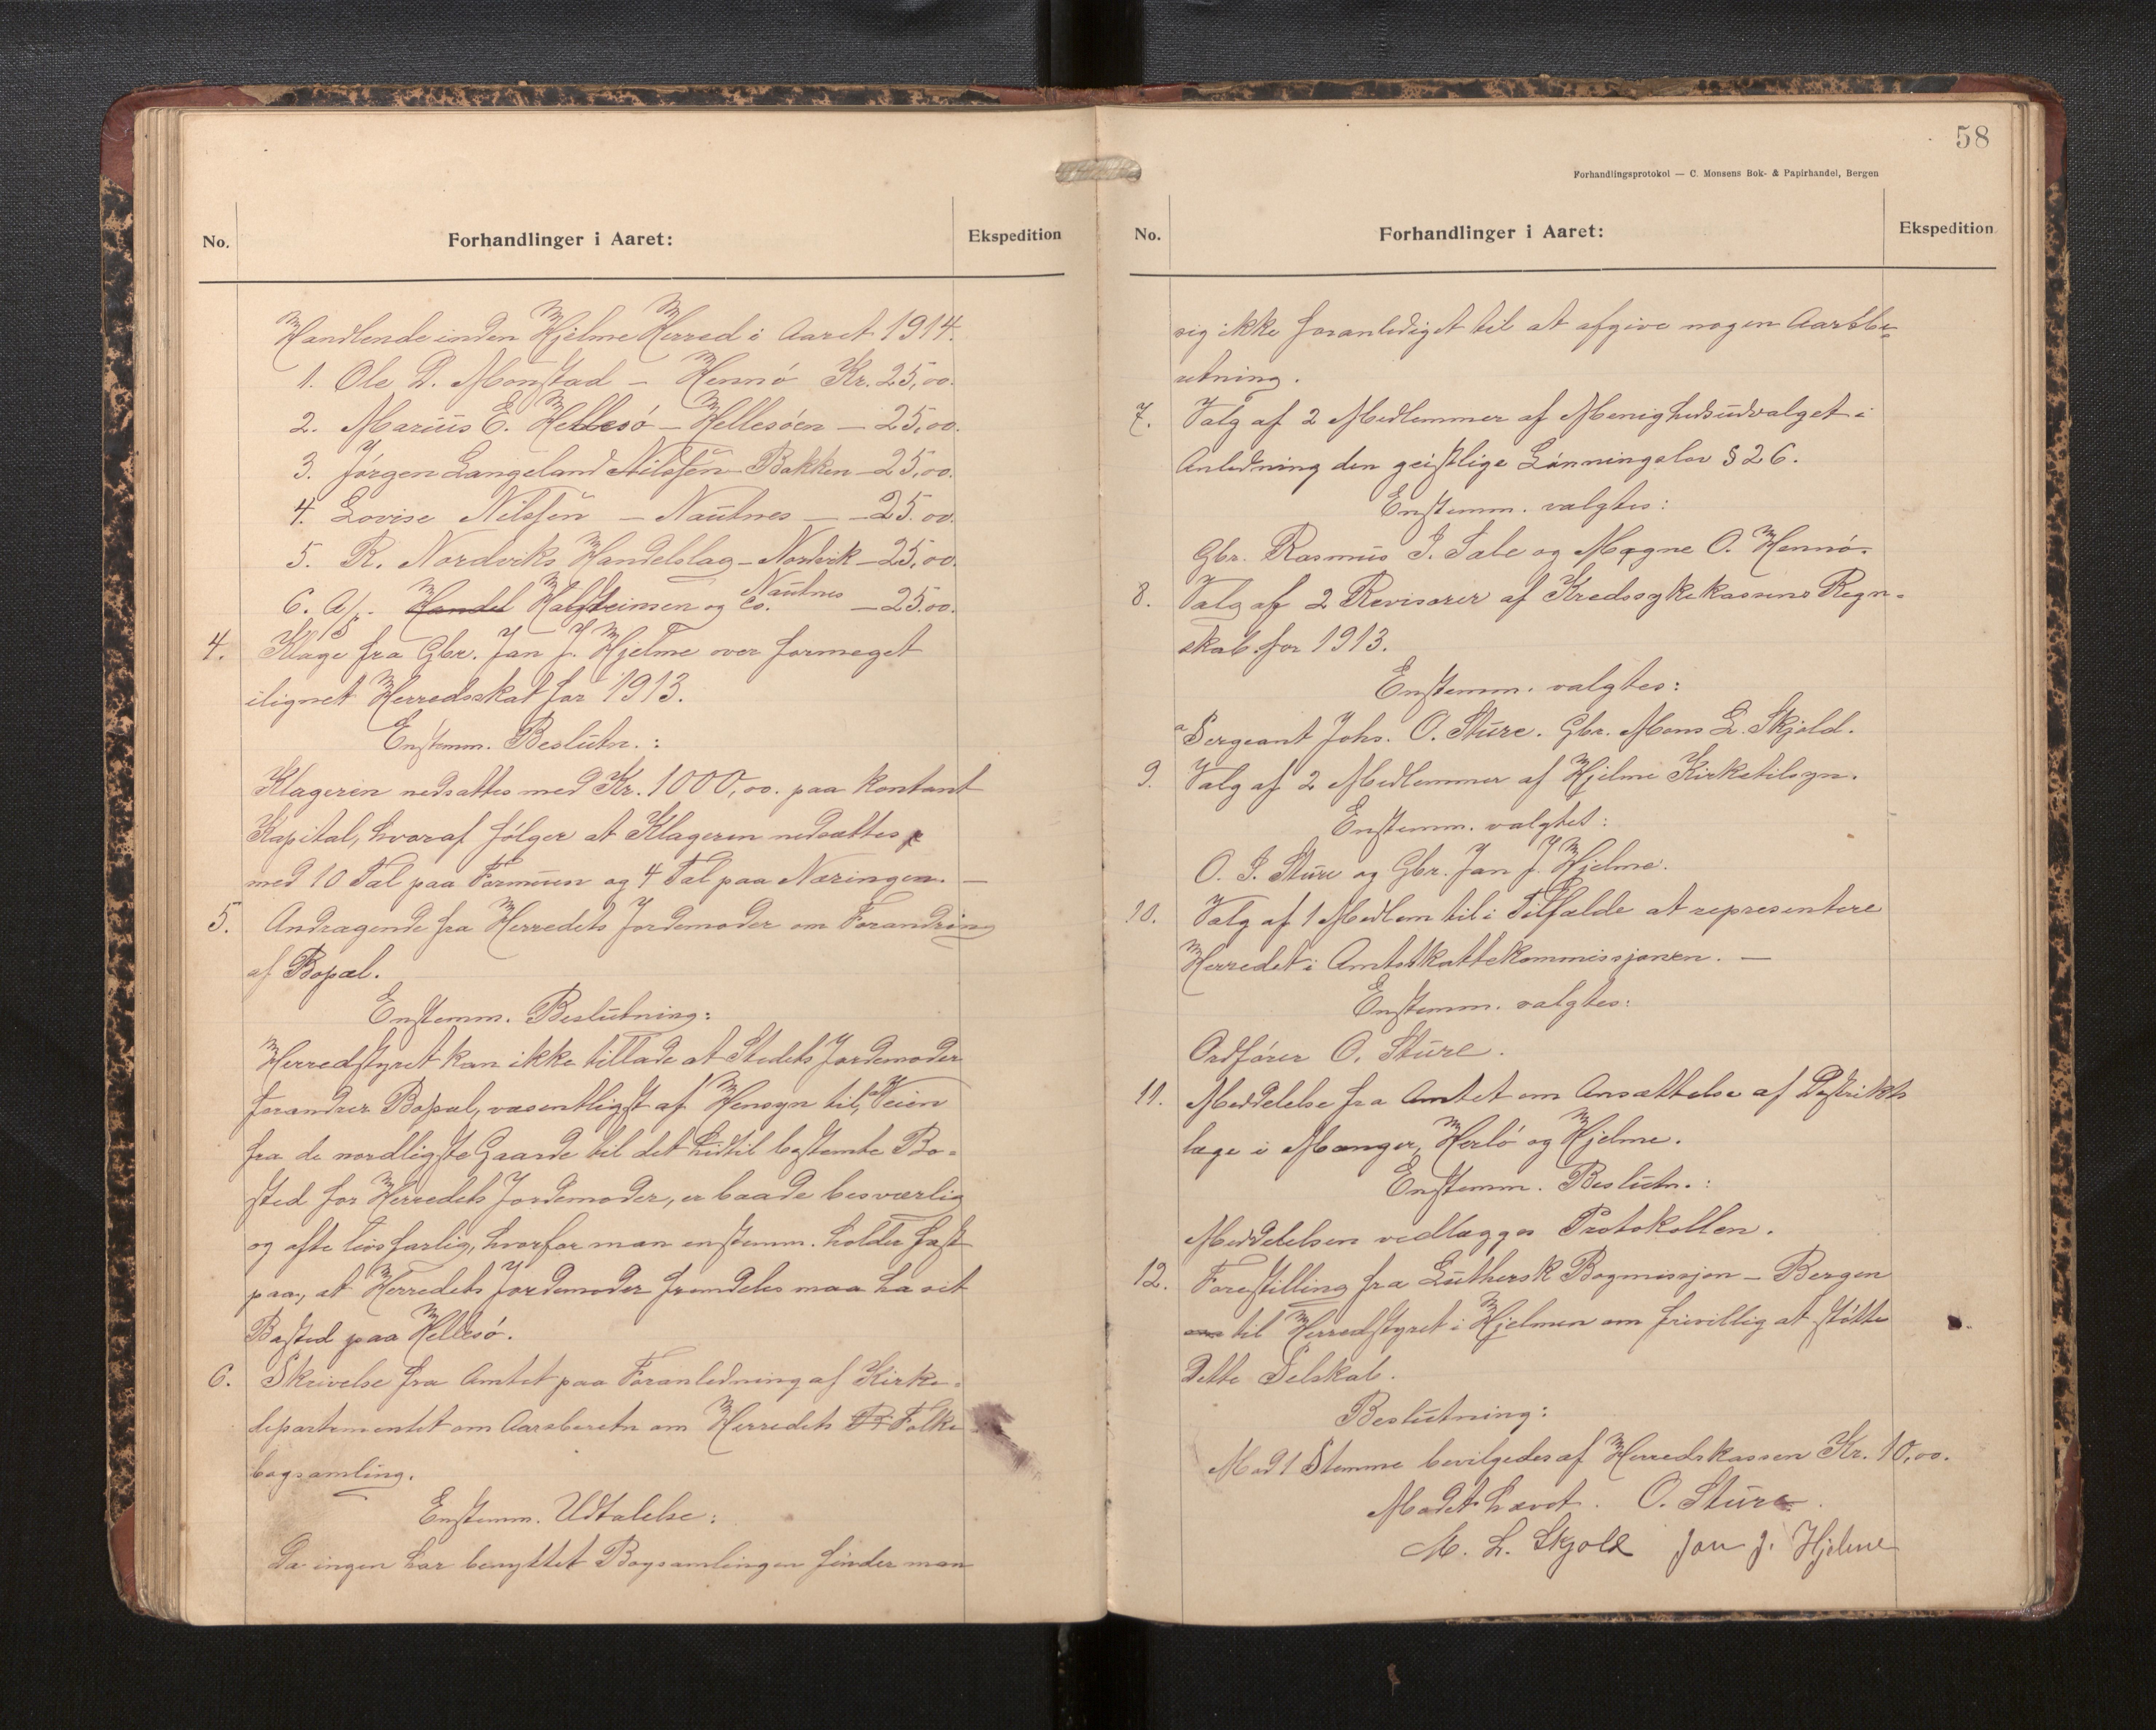 No.
Forhandlinger i Aaret:
Ekspedition
Handlende inden Hjelme Herred i Aaret 1914.
1. Ole D. Monstad – Hennö Kr. 25,00.
2. Marius E. Hellesö – Hellesöen – 25,00.
3. Jörgen Langeland Nilssen Bakken – 25,00.
4. Lovise Nilssen – Nautnes – – 25.00.
5. R. Nordviks Handelslag – Nordvik – 25,00.
Nautnes
6. A/S. Handel Halsteinsen og Co. – 25.00.
4. Klage fra Gbr. Jan J. Hjelme over formeget
ilignet Herredsskat for 1913.
Enstemm. Beslutn.:
Klageren nedsattes med Kr. 1000,00. paa kontant
Kapital, hvoraf fölger at Klageren nedsættes
med 10 Tal paa Formuen og 4 Tal paa Næringen. —
5. Andragende fra Herredets Jordemoder om Forandring
af Bopæl.
Enstemm. Beslutning:
Herredstyret kan ikke tillade at Stedets Jordemoder
forandrer Bopæl, væsentligst af Hensyn til, at Veien
fra de nordligste Gaarde til det hidtil bestemte Bo-
sted for Herredets Jordemoder, er baade besværlig
og ofte livsfarlig, hvorfor man enstemm. holder fast
paa, at Herredets Jordemoder fremdeles maa ha sit
Bosted paa Hellesö.
6. Skrivelse fra Amtet paa Foranledning af Kirke-
departementet om Aarsberetn om Herredets Folke
bogsamling.
Enstemm. Udtalelse:
Da ingen har benyttet Bogsamlingen finder man
58
Forhandlingsprotokol — C. Monsens Bok- & Papirhandel, Bergen
No.
Forhandlinger i Aaret:
Ekspedition
sig ikke foranlediget til at afgive nogen Aarsbe-
retning.
7. Valg af 2 Medlemmer af Menighedsudvalget i
Anledning den geistlige Lönningslov § 26.
Enstemm. valgtes:
Gbr. Rasmus I. Sale og Magne O. Hennö.
8. Valg af 2 Revisorer af Kredssykekassens Regn-
skab for 1913.
Enstemm. valgtes:
Sergeant Johs. O. Sture. Gbr. Mons L. Skjold.
9. Valg af 2 Medlemmer af Hjelme Kirketilsyn.
Enstemm. valgtes:
O. I. Sture og Gbr. Jan J. Hjelme.
10. Valg af 1 Medlem til i Tilfælde at representere
Herredet i Amtsskattekommissjonen. —
Enstemm. valgtes:
Ordförer O. Sture.
11. Meddelelse fra Amtet om Ansættelse af Distrikts
læge i Manger, Herlö og Hjelme.
Enstemm. Beslutn.:
Meddelelsen vedlægges Protokollen.
12. Forestilling fra Luthersk Bogmissjon – Bergen
til Herredstyret i Hjelmen om frivillig at stötte
dette Selskab.
Beslutning:
Mod 1 Stemme bevilgedes af Herredskassen Kr. 10,00.
Mödet hævet. O. Sture.
M. L. Skjold Jan J. Hjelme